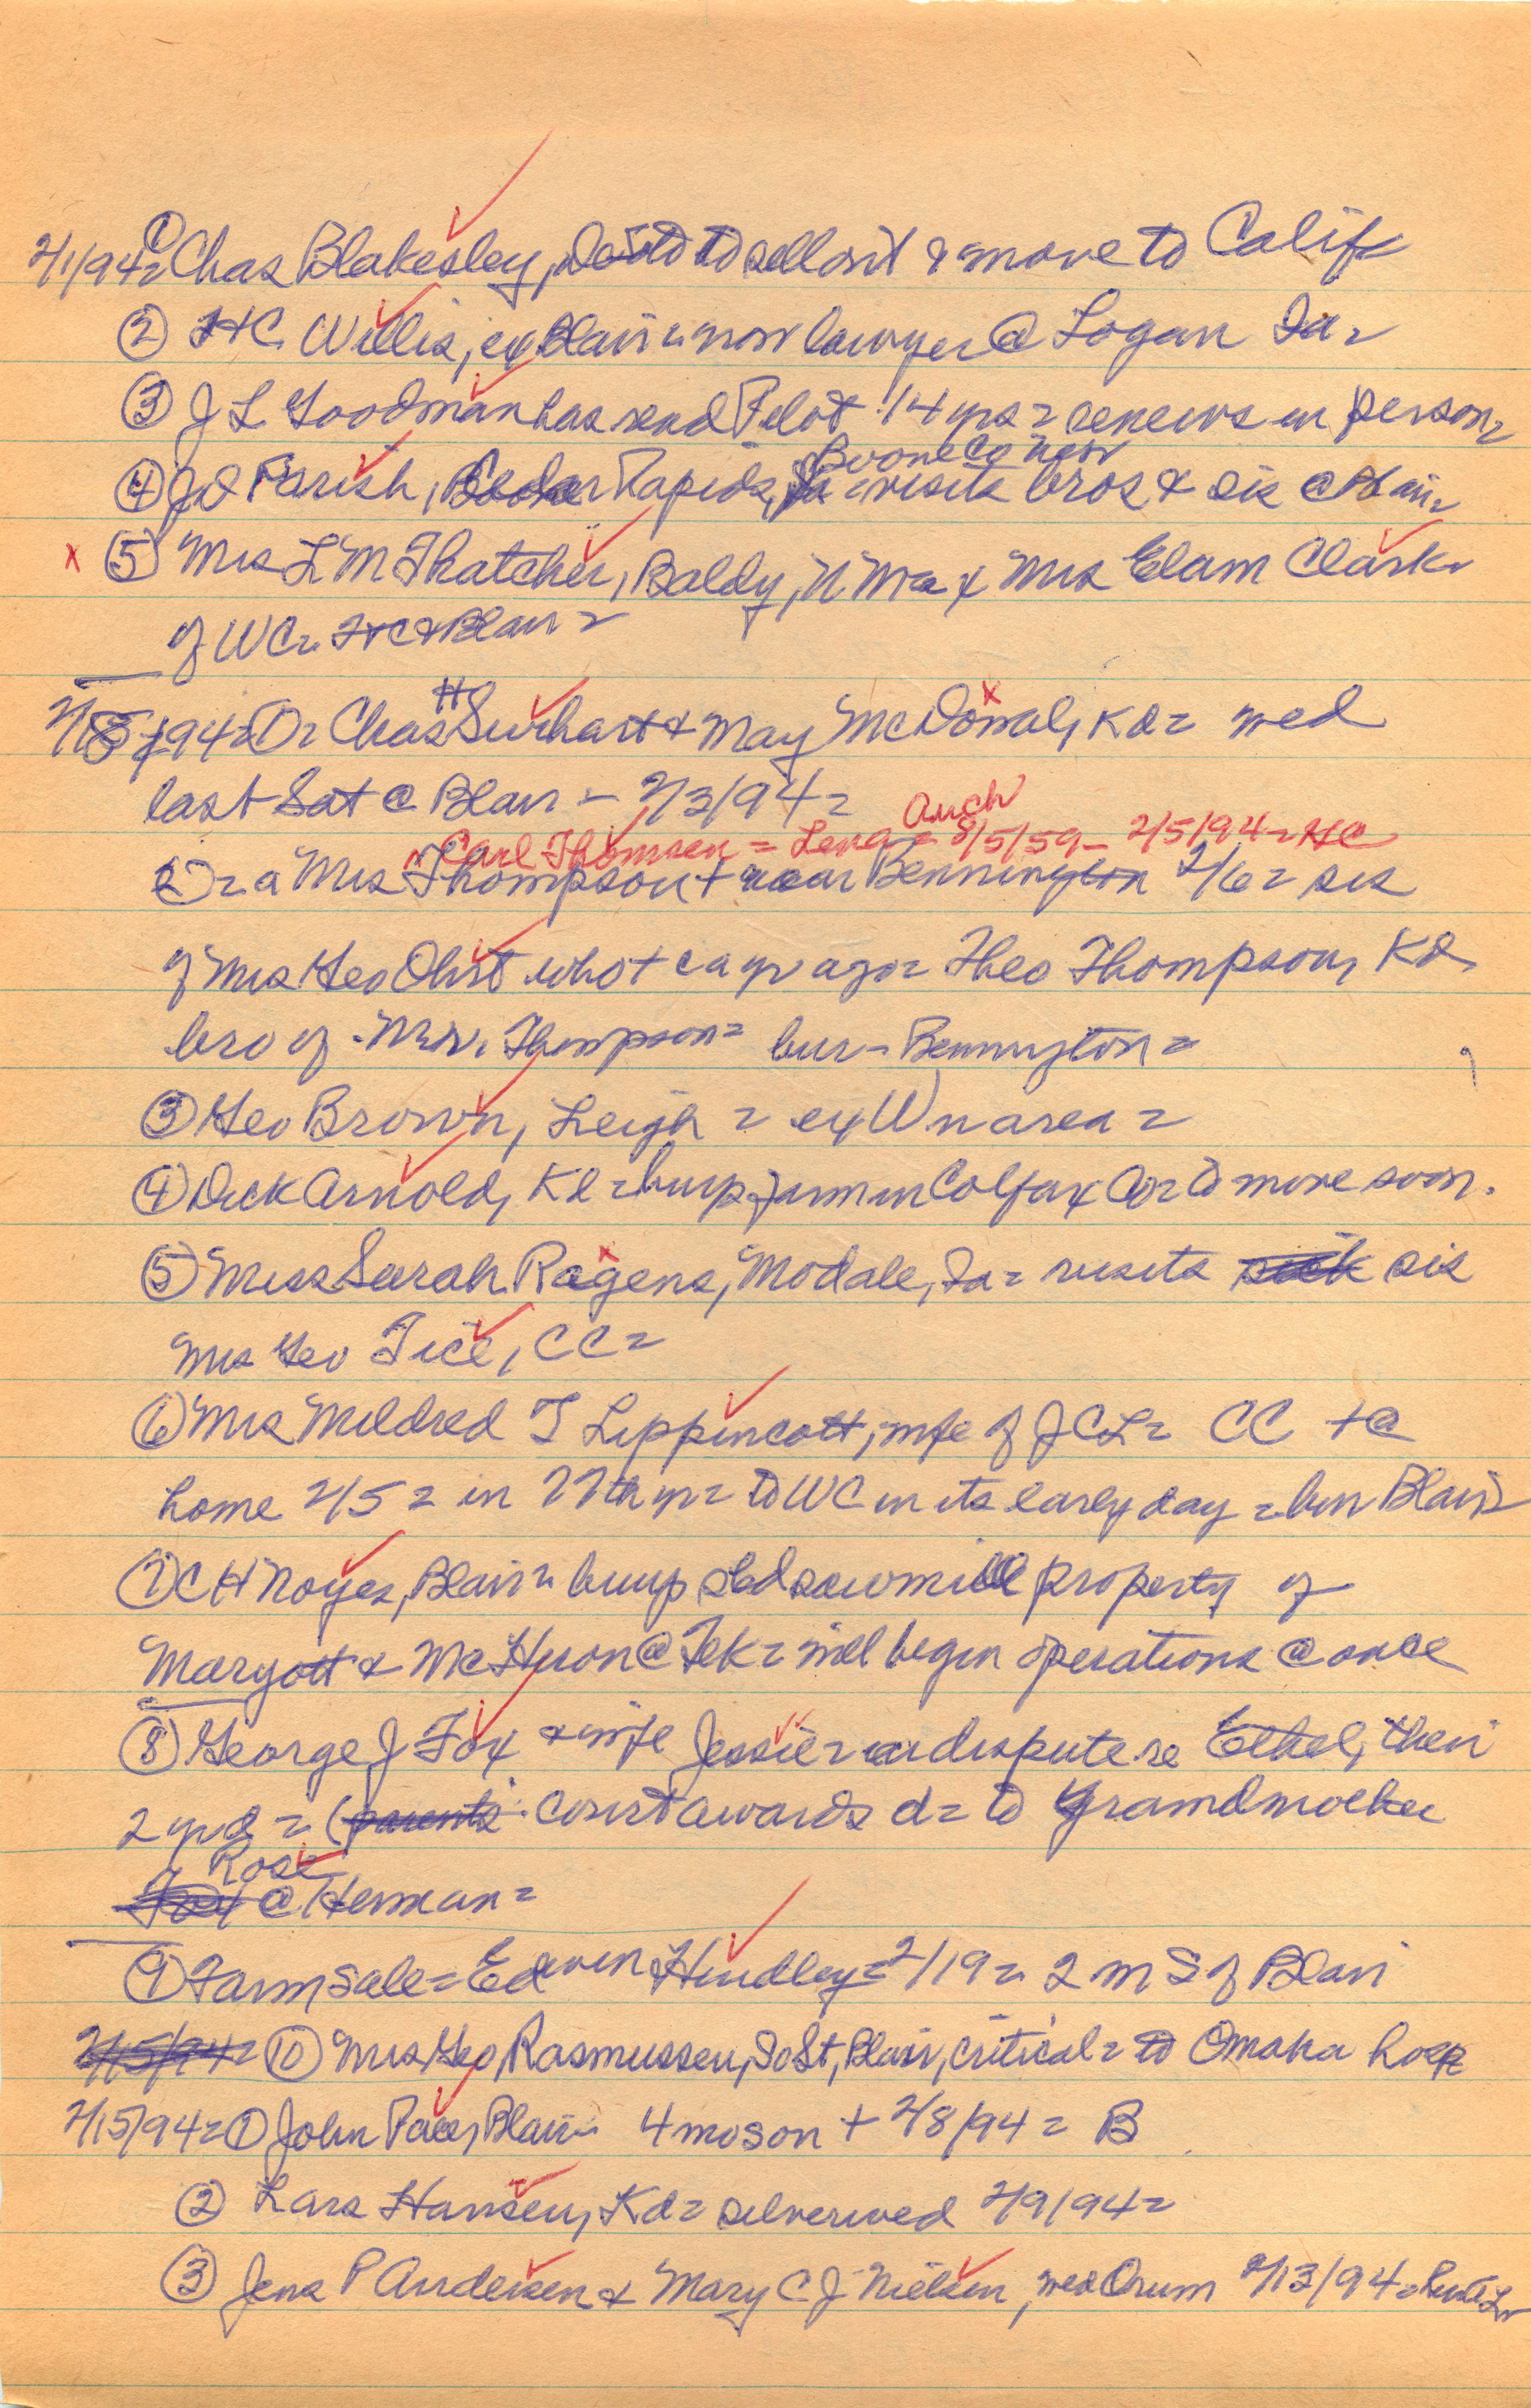 2/1/94= ① Chas Blakesley, DeSoto to sell out & move to Calif
② HC Willis, ex Blair = now lawyer @ Logan Ia =
③ J L Goodman has read Pilot 14 yrs = renews in person =
Boone Co Nebr
④ J D Parish, Cedar Rapids, = visits bros & sis @ Blair =
x ⑤ Mrs L M Thatcher, Baldy, N M = ex Mrs Elam Clark
of WC = Ft C & Blair =
H
2/8/94 = Dr Chas Swihart & May McDonal, Kd = wed
last Sat @ Blair - 2/3/94 =
Auch
Carl Thomsen = Lena = 8/5/59 - 2/5/94 = HC
② = a Mrs Thompson + near Bennington 2/6 = sis
of Mrs Geo Ohrt who + c a yr ago = Theo Thompson, Kd
bro of Mr. Thompson = bur - Bennington =
③ Geo Brown, Leigh = ex Wn area =
④ Dick Arnold, Kd = buys farm in Colfax Co = to move soon.
⑤ Miss Sarah Ragens, Modale, Ia = visits sick sis
Mrs Geo Tice, CC =
⑥ Mrs Mildred T Lippincott, wife of J C L = CC + @
home 2/5 = in 77th yr = to WC in its early day = bur Blair
⑦ C H Noyes, Blair = buys sawmill property of
Maryott & McHuron @ Tek = will begin operations @ once
⑧ George J Fox & wife Jessie = in dispute re Ethel, their
2 yr d = (parents court awards d = to Grandmother
Rose
Fox @ Herman =
⑨ Farm sale = Edwin Hindley = 2/19 = 2 m S of Blair
2/15/94 = ⑩ Mrs Geo Rasmussen, So St, Blair, critical = to Omaha hosp
2/15/94 = ① John Paces, Blair = 4 mo son + 2/8/94 = B
② Lars Hansen, Kd = silver wed 2/9/94 =
③ Jens P Andersen & Mary C J Nielsen, wed Orum 2/13/94 =